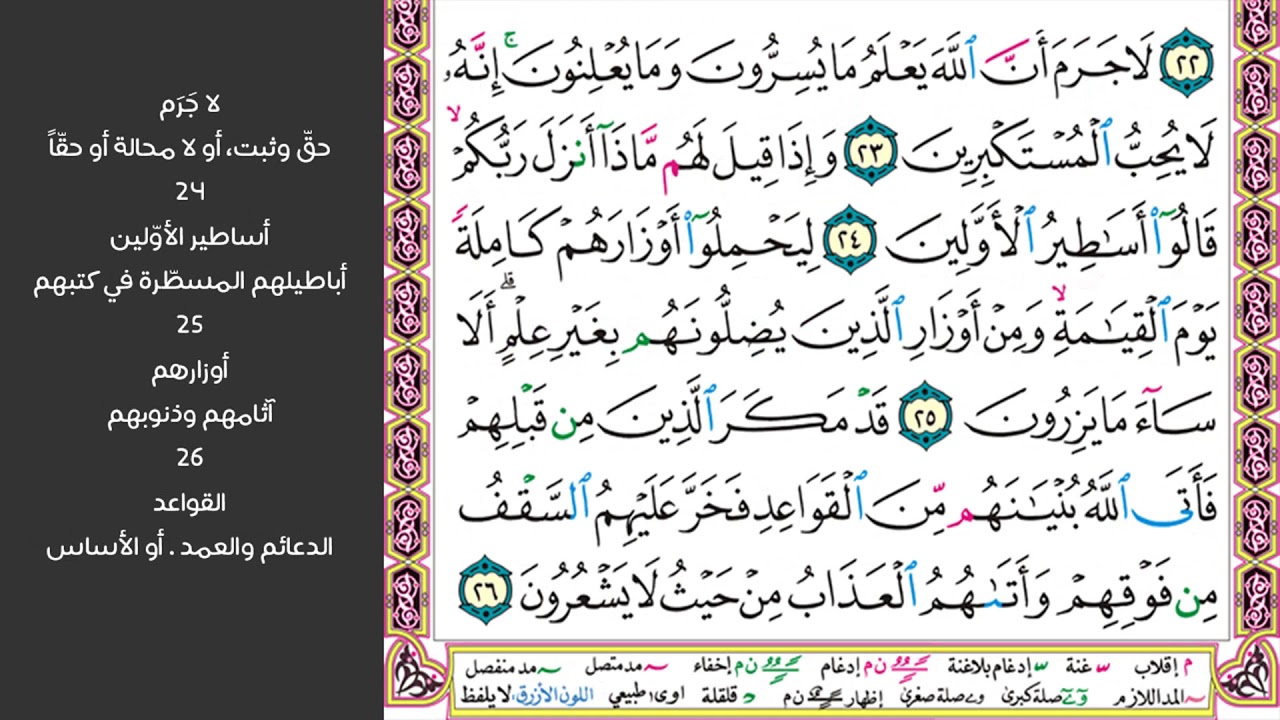 ٢٢ لَا جَرَمَ أَنَّ ٱللَّهَ يَعْلَمُ مَا يُسِرُّونَ وَمَا يُعْلِنُونَ ۚ إِنَّهُۥ
لَا يُحِبُّ ٱلْمُسْتَكْبِرِينَ ٢٣ وَإِذَا قِيلَ لَهُم مَّاذَآ أَنزَلَ رَبُّكُمْ ۙ
قَالُوٓا۟ أَسَٰطِيرُ ٱلْأَوَّلِينَ ٢٤ لِيَحْمِلُوٓا۟ أَوْزَارَهُمْ كَامِلَةً
يَوْمَ ٱلْقِيَٰمَةِ ۙ وَمِنْ أَوْزَارِ ٱلَّذِينَ يُضِلُّونَهُم بِغَيْرِ عِلْمٍ ۗ أَلَا
سَآءَ مَا يَزِرُونَ ٢٥ قَدْ مَكَرَ ٱلَّذِينَ مِن قَبْلِهِمْ
فَأَتَى ٱللَّهُ بُنْيَٰنَهُم مِّنَ ٱلْقَوَاعِدِ فَخَرَّ عَلَيْهِمُ ٱلسَّقْفُ
مِن فَوْقِهِمْ وَأَتَىٰهُمُ ٱلْعَذَابُ مِنْ حَيْثُ لَا يَشْعُرُونَ ٢٦
م إقلاب غنة إدغام بلاغنة ن م إدغام ن م إخفاء مد متصل مد منفصل
المد اللازم صلة كبرى و ے صلة صغرى إظهار ن م د قلقلة اوى طبيعي اللون الأزرق، لا يلفظ
لا جَرَم
حقّ وثبت، أو لا محالة أو حقّاً
24
أساطير الأوّلين
أباطيلهم المسطّرة في كتبهم
25
أوزارهم
آثامهم وذنوبهم
26
القواعد
الدعائم والعمد . أو الأساس